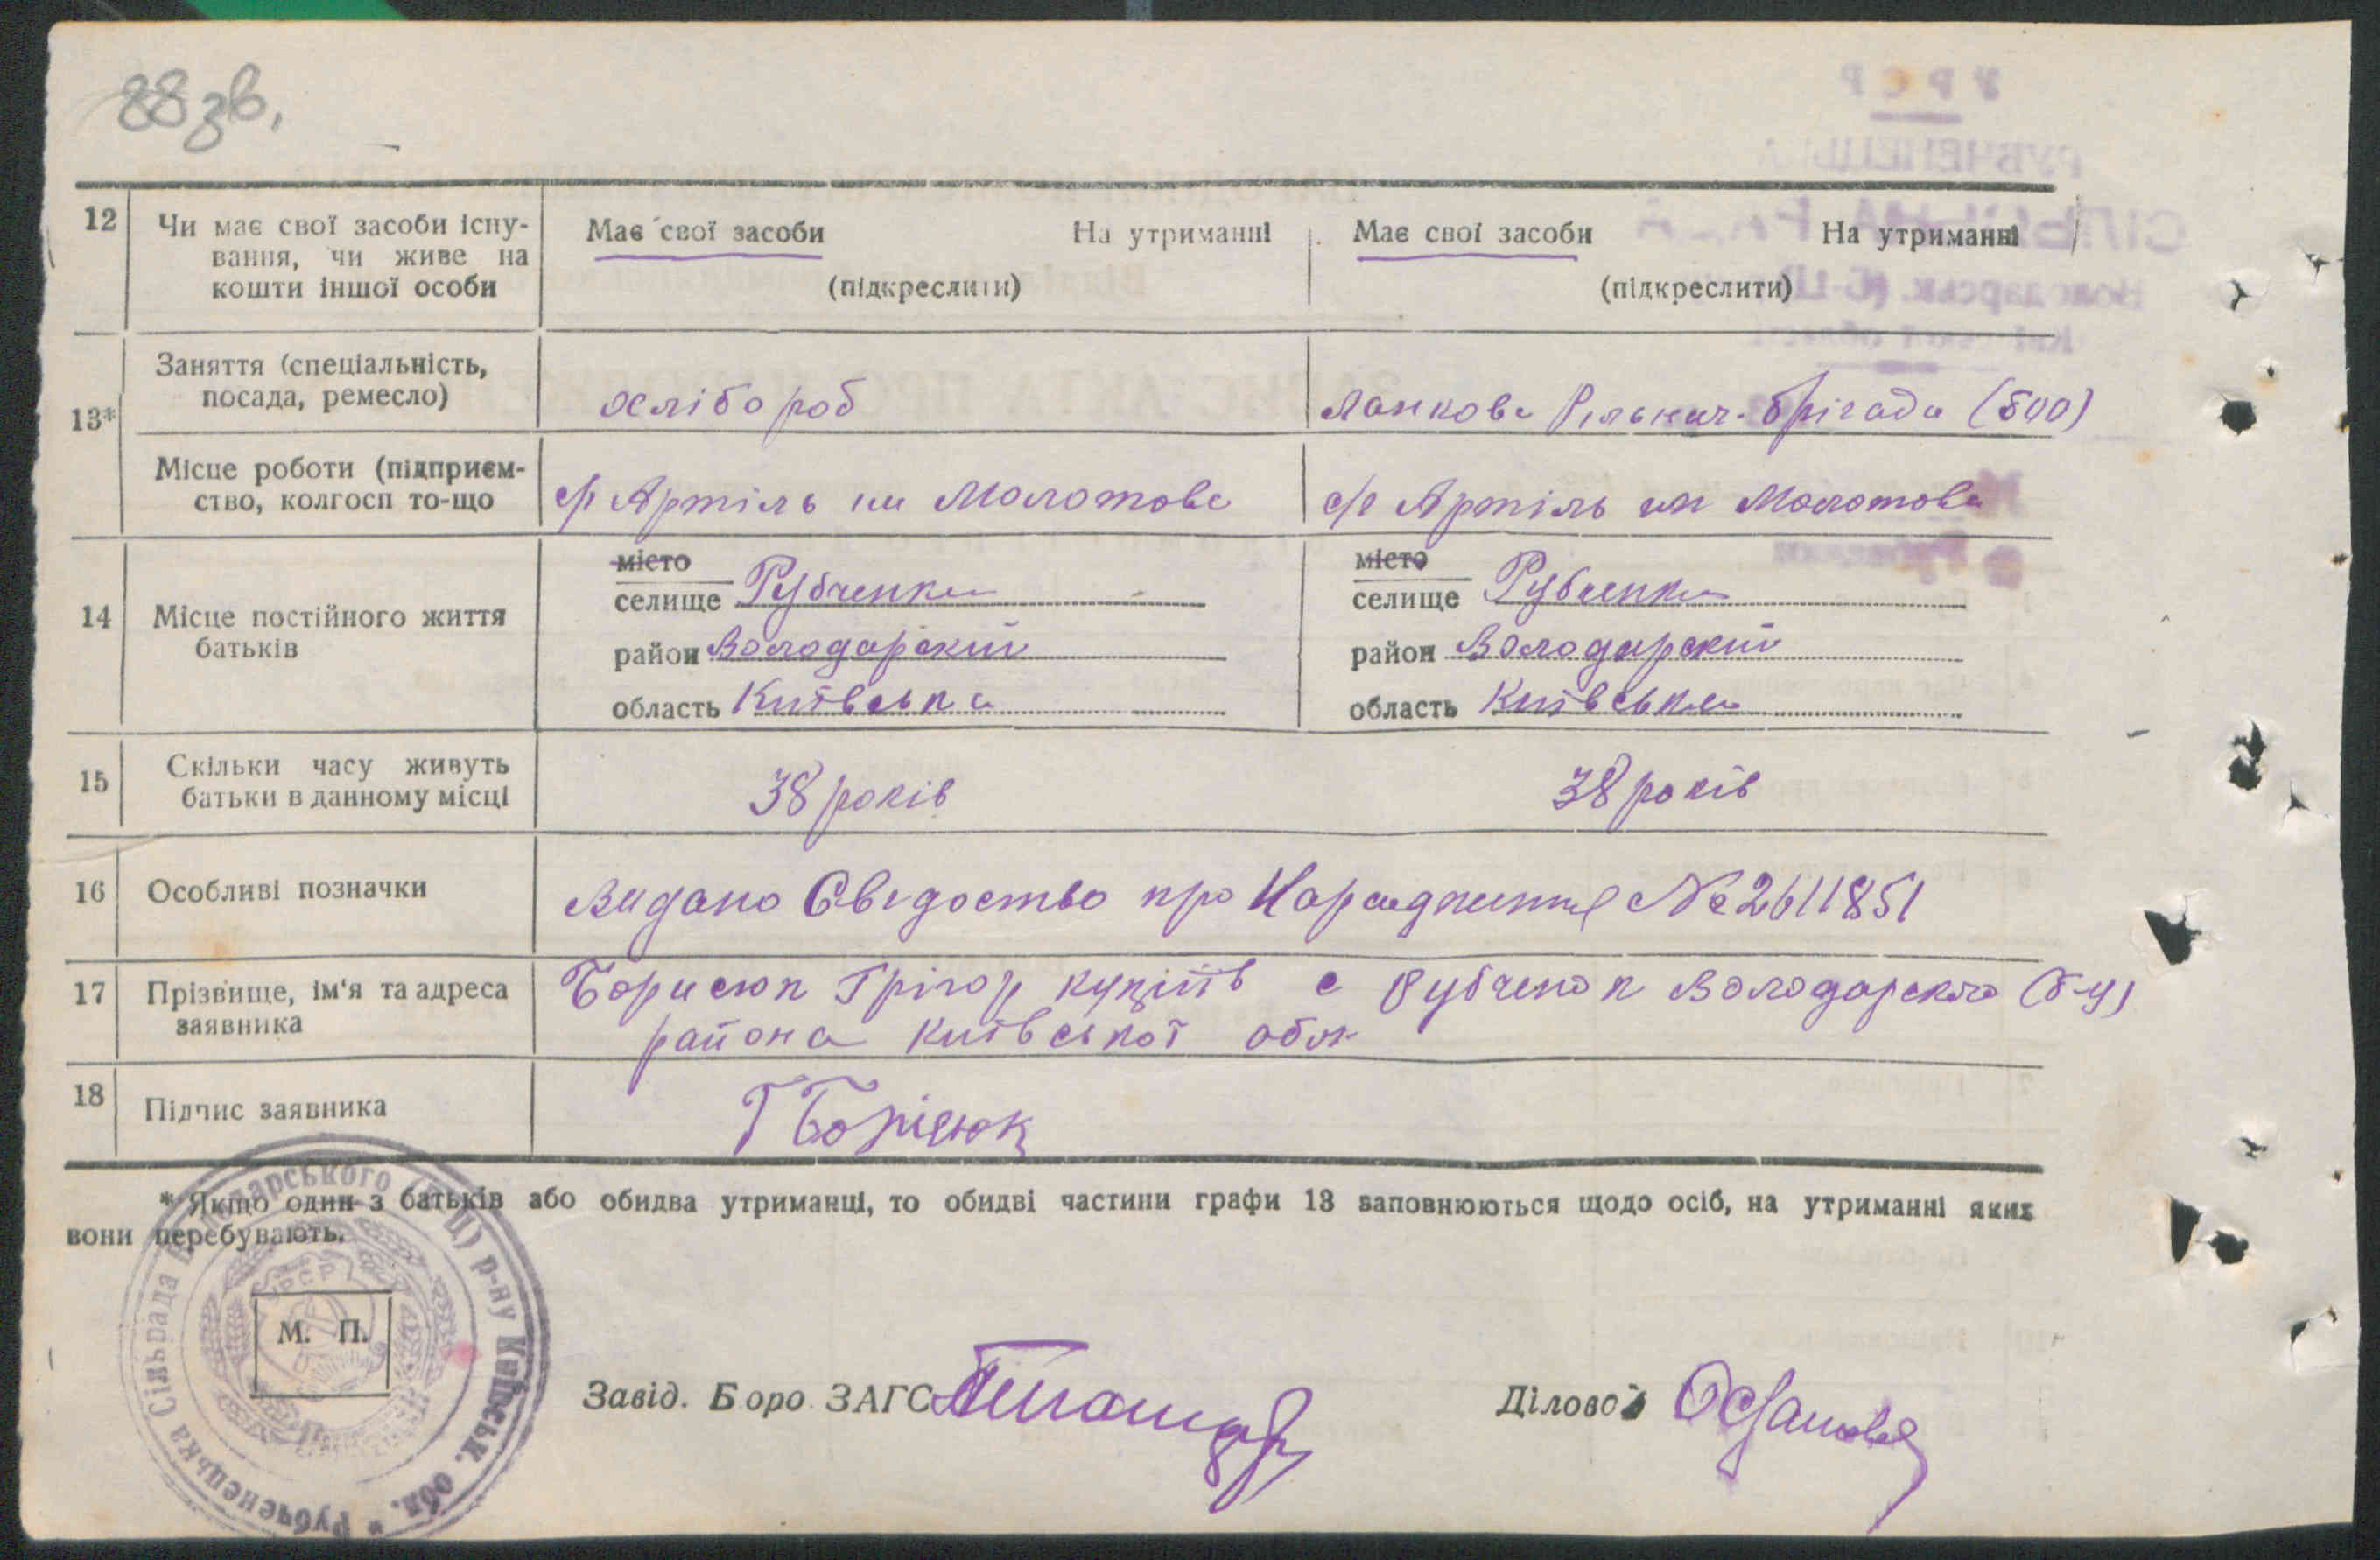 88зв.
12 Чи має свої засоби існу-
вання, чи живе на
кошти іншої особи
Має свої засоби На утриманні
(підкреслити)
Має свої засоби На утриманні
(підкреслити)
13*
Заняття (спеціальність,
посада, ремесло)
хлібороб
Ланкова бригада (500)
Місце роботи (підприєм-
ство, колгосп то-що
с/г Артіль им Молотова
с/г Артіль им Молотова
14 Місце постійного життя
батьків
місто
селище Рубченки
район Володарский
область Київська
місто
селище Рубченки
район Володарский
область Київська
15 Скільки часу живуть
батьки в данному місці
38 років
38 років
16 Особливі позначки
Видано Свідоство про Народження № 2611851
17 Прізвище, ім'я та адреса
заявника
Борисюк Грігор с Рубченок Володарского
района Київської обл
18 Підпис заявника
Г Борісюк
* Якщо один з батьків або обидва утриманці, то обидві частини графи 13 заповнюються щодо осіб, на утриманні яких
вони перебувають.
Рубченецька Сільрада р-ну Київськ. обл. *
УРСР
М. П.
Завід. Боро ЗАГС
Діловод